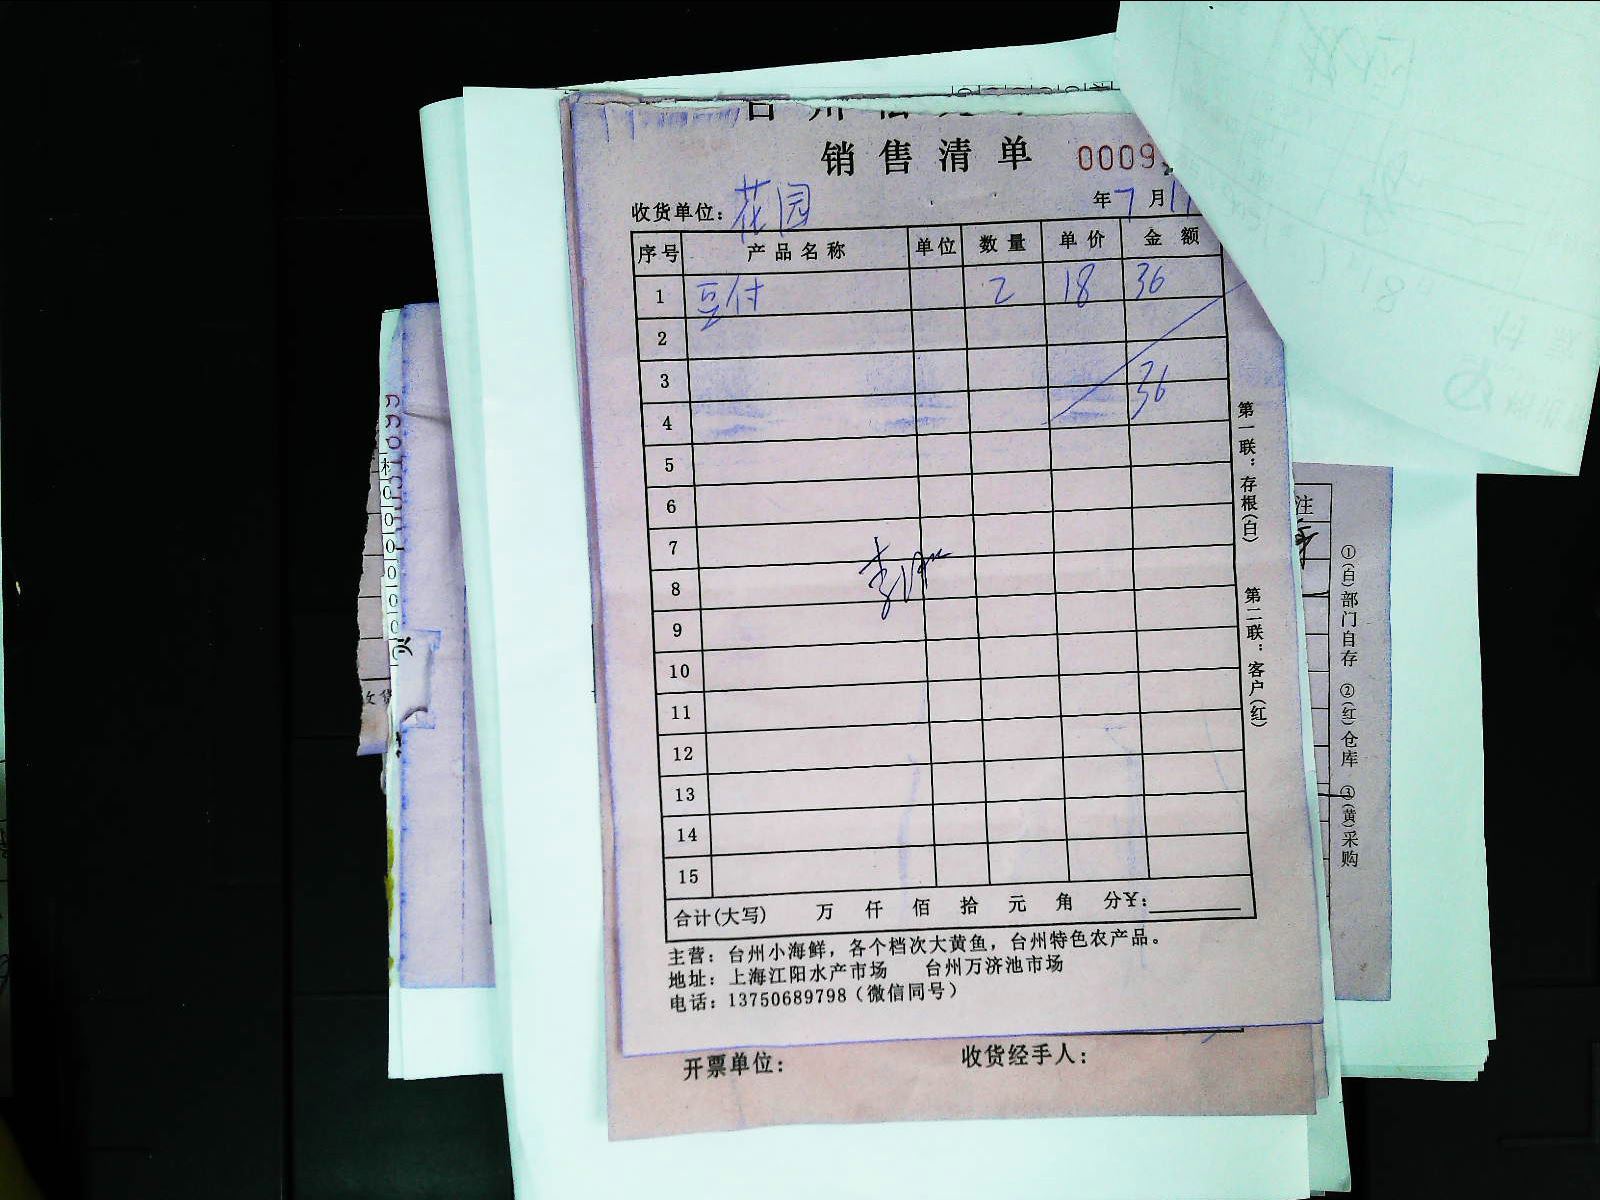 销售清单 0009
收货单位: 花园 年7月1
序号 产品名称 单位 数量 单价 金额
1 豆付 2 18 36
2
3 36
4
5
6
7
8
9
10
11
12
13
14
15
合计(大写) 万 仟 佰 拾 元 角 分¥:
主营: 台州小海鲜, 各个档次大黄鱼, 台州特色农产品。
地址: 上海江阳水产市场 台州万济池市场
电话: 13750689798 (微信同号)
第一联: 存根(白) 第二联: 客户(红)
开票单位: 收货经手人:
注
①(白)部门自存 ②(红)仓库 ③(黄)采购